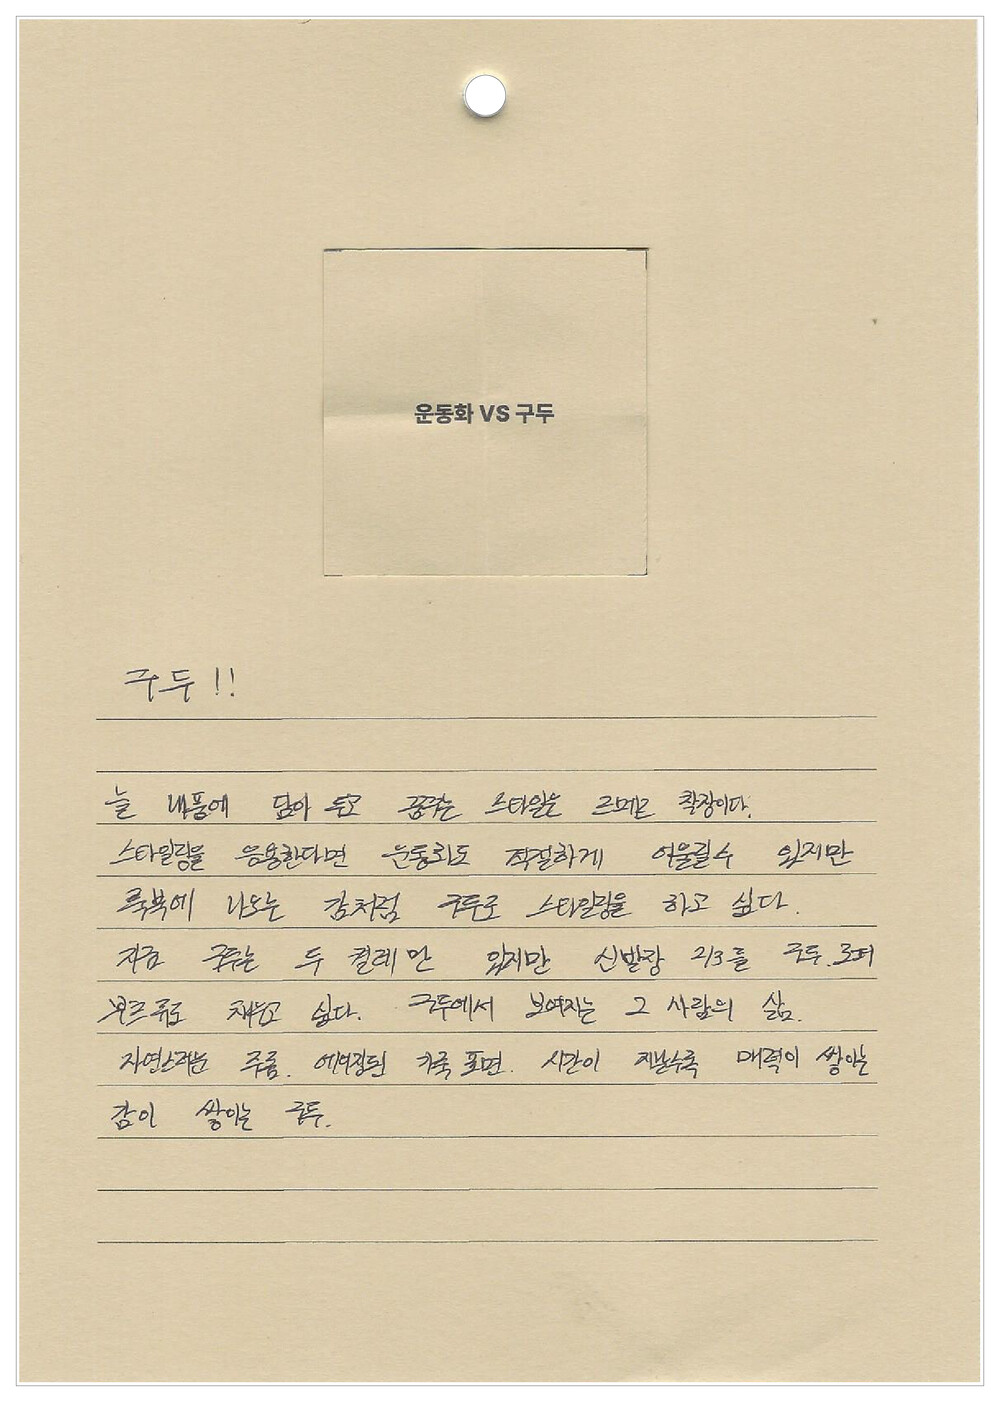 운동화 VS 구두
구두 !!
늘 내품에 담아 두고 꿈꾸는 스타일은 르메르 착장이다.
스타일링을 응용한다면 운동화도 적절하게 어울릴수 있지만
룩북에 나오는 감처럼 구두로 스타일링을 하고 싶다.
지금 구두는 두 켤레만 있지만 신발장 2/3를 구두, 로퍼
부츠류로 채우고 싶다. 구두에서 보여지는 그 사람의 삶.
자연스러운 주름. 에이징된 가죽 표면. 시간이 지날수록 매력이 쌓이는
감이 쌓이는 구두.